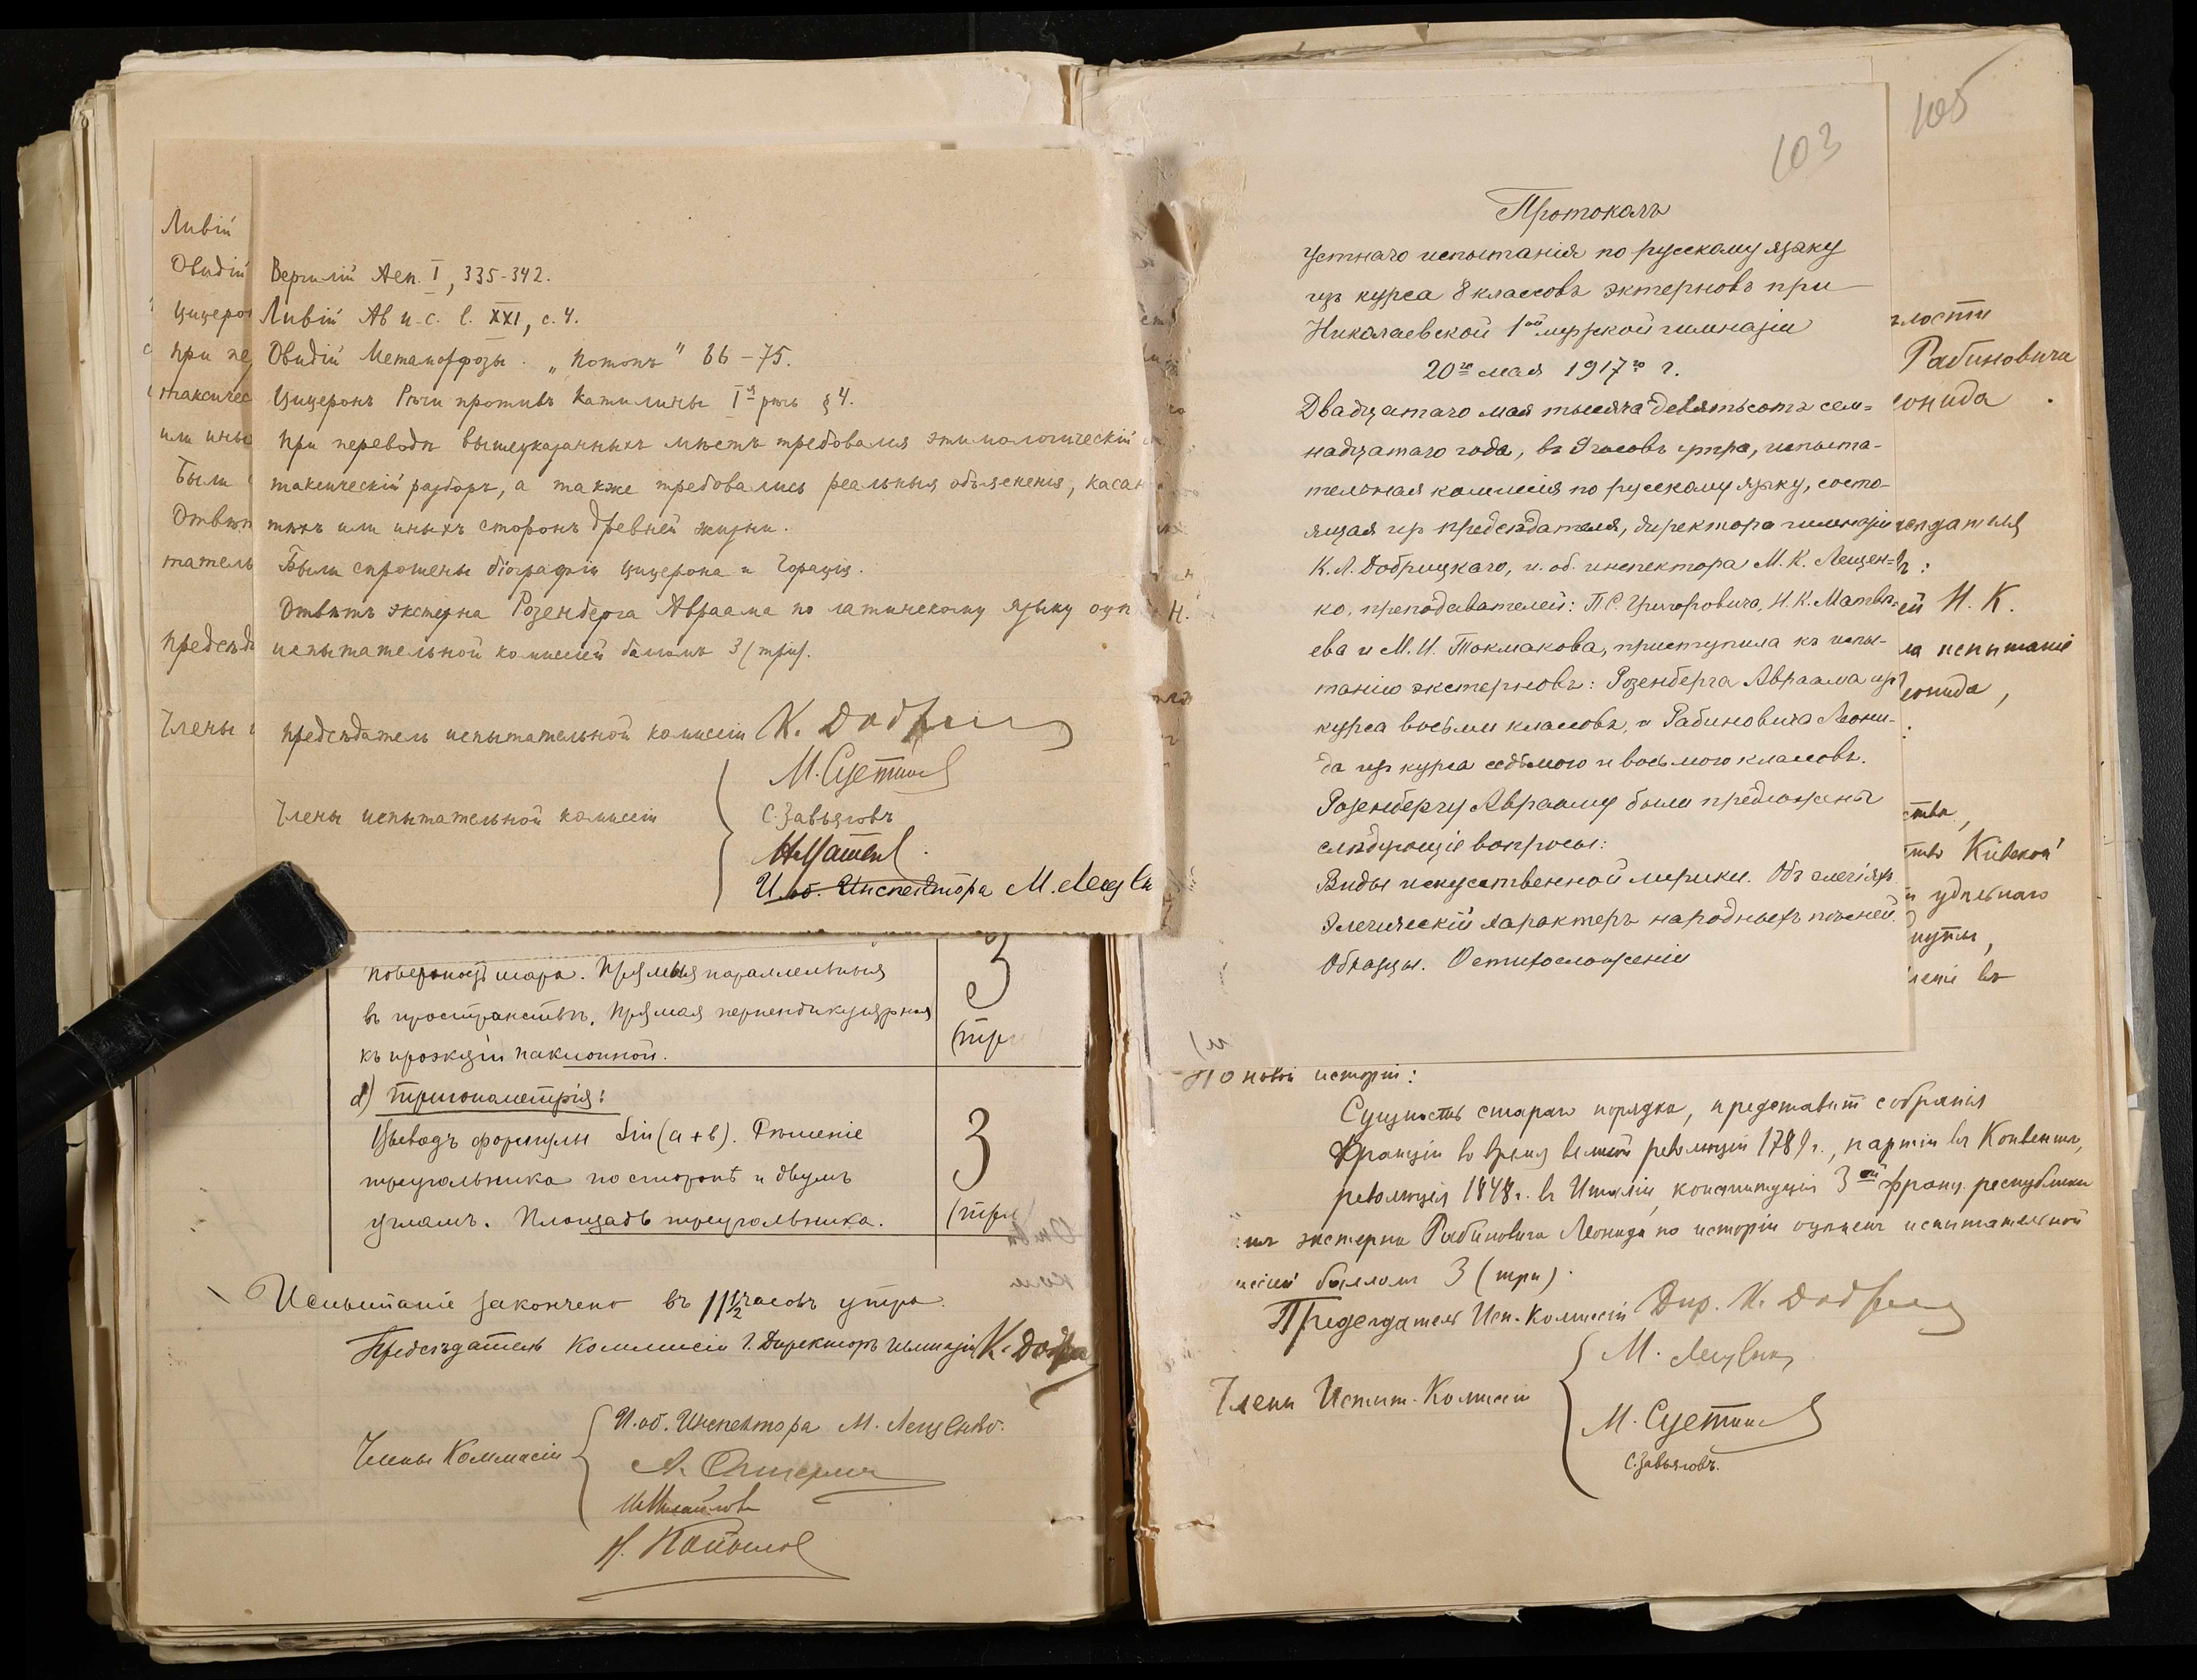 Ливій
Овидій
Цицерон
при пе
таксичес
или ины
Были
Отвѣт
татель
Предсѣд
Члены
Вергилій Аен. I, 335-342.
Ливій Ab u. c. l. XXI, c. 4.
Овидій Метаморфозы. „Потопъ" 66-75.
Цицеронъ Рѣчи противъ Катилины I-я рѣчь § 4.
При переводѣ вышеуказанныхъ мѣстъ требовался этимологическій
таксическій разборъ, а также требовались реальныя объясненія, касаю
тѣхъ или иныхъ сторонъ древней жизни.
Были спрошены біографіи Цицерона и Горація.
Отвѣтъ экстерна Розенберга Авраама по латинскому языку оцѣ
испытательной комиссіей баломъ 3 (три).
Предсѣдатель испытательной комиссіи К. Добр
Члены испытательной комиссіи
М. Суетин
С. Завьяловъ
И. об. Инспектора М. Лещен
поверхность шара. Прямыя параллельныя
въ пространствѣ. Прямая перпендикулярная
къ проэкціи наклонной.
3
(три
d) Тригонометрія:
Выводъ формулы Sin(a+b). Рѣшеніе
треугольника по сторонѣ и двумъ
угламъ. Площадь треугольника.
3
(три
Испытаніе закончено въ 11 1/2 часовъ утра.
Предсѣдатель Коммисіи Г. Директоръ гимназіи К. Добр
Члены Коммисіи
И. об. Инспектора М. Лещенко.
103
105
Протоколъ
устнаго испытанія по русскому языку
изъ курса 8 классовъ экстерновъ при
Николаевской 1ой мужской гимназіи
20го мая 1917го г.
Двадцатаго мая тысяча девятьсотъ сем-
надцатаго года, въ 9 часовъ утра, испыта-
тельная комиссія по русскому языку, состо-
ящая изъ предсѣдателя, директора гимназіи
К. Л. Добрицкаго, и. об. инспектора М. К. Лещен-
ко, преподавателей: П. С. Григоровича, Н. К. Матвѣ-
ева и М. И. Токмакова, приступила къ испы-
танію экстерновъ: Розенберга Авраама изъ
курса восьми классовъ, и Рабиновича Леони-
да изъ курса седьмого и восьмого классовъ.
Розенбергу Аврааму были предложены
слѣдующіе вопросы:
Виды искусственной лирики. Объ элегіяхъ.
Элегическій характеръ народныхъ пѣсней.
Образцы. О стихосложеніи
Рабиновича
онида
Н. К.
ла испытаніе
еонида,
ства,
Кіевской
удѣльнаго
смуты,
въ
По новой исторіи:
Сущность стараго порядка, представит собранія
Франціи во время великой революціи 1789 г., партіи въ Конвентѣ,
революція 1848 г. въ Италіи, конституція 3ей франц. республики
экстерна Рабиновича Леонида по исторіи оцѣненъ испытательной
миссіей балломъ 3 (три).
Предсѣдатель Исп. Комиссіи Дир. К. Добр
Члены Испыт. Комиссіи
М. Лещенко
М. Суетин
С. Завьяловъ.